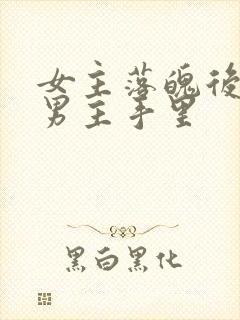 女主落魄後
男主手里
黑白黑化